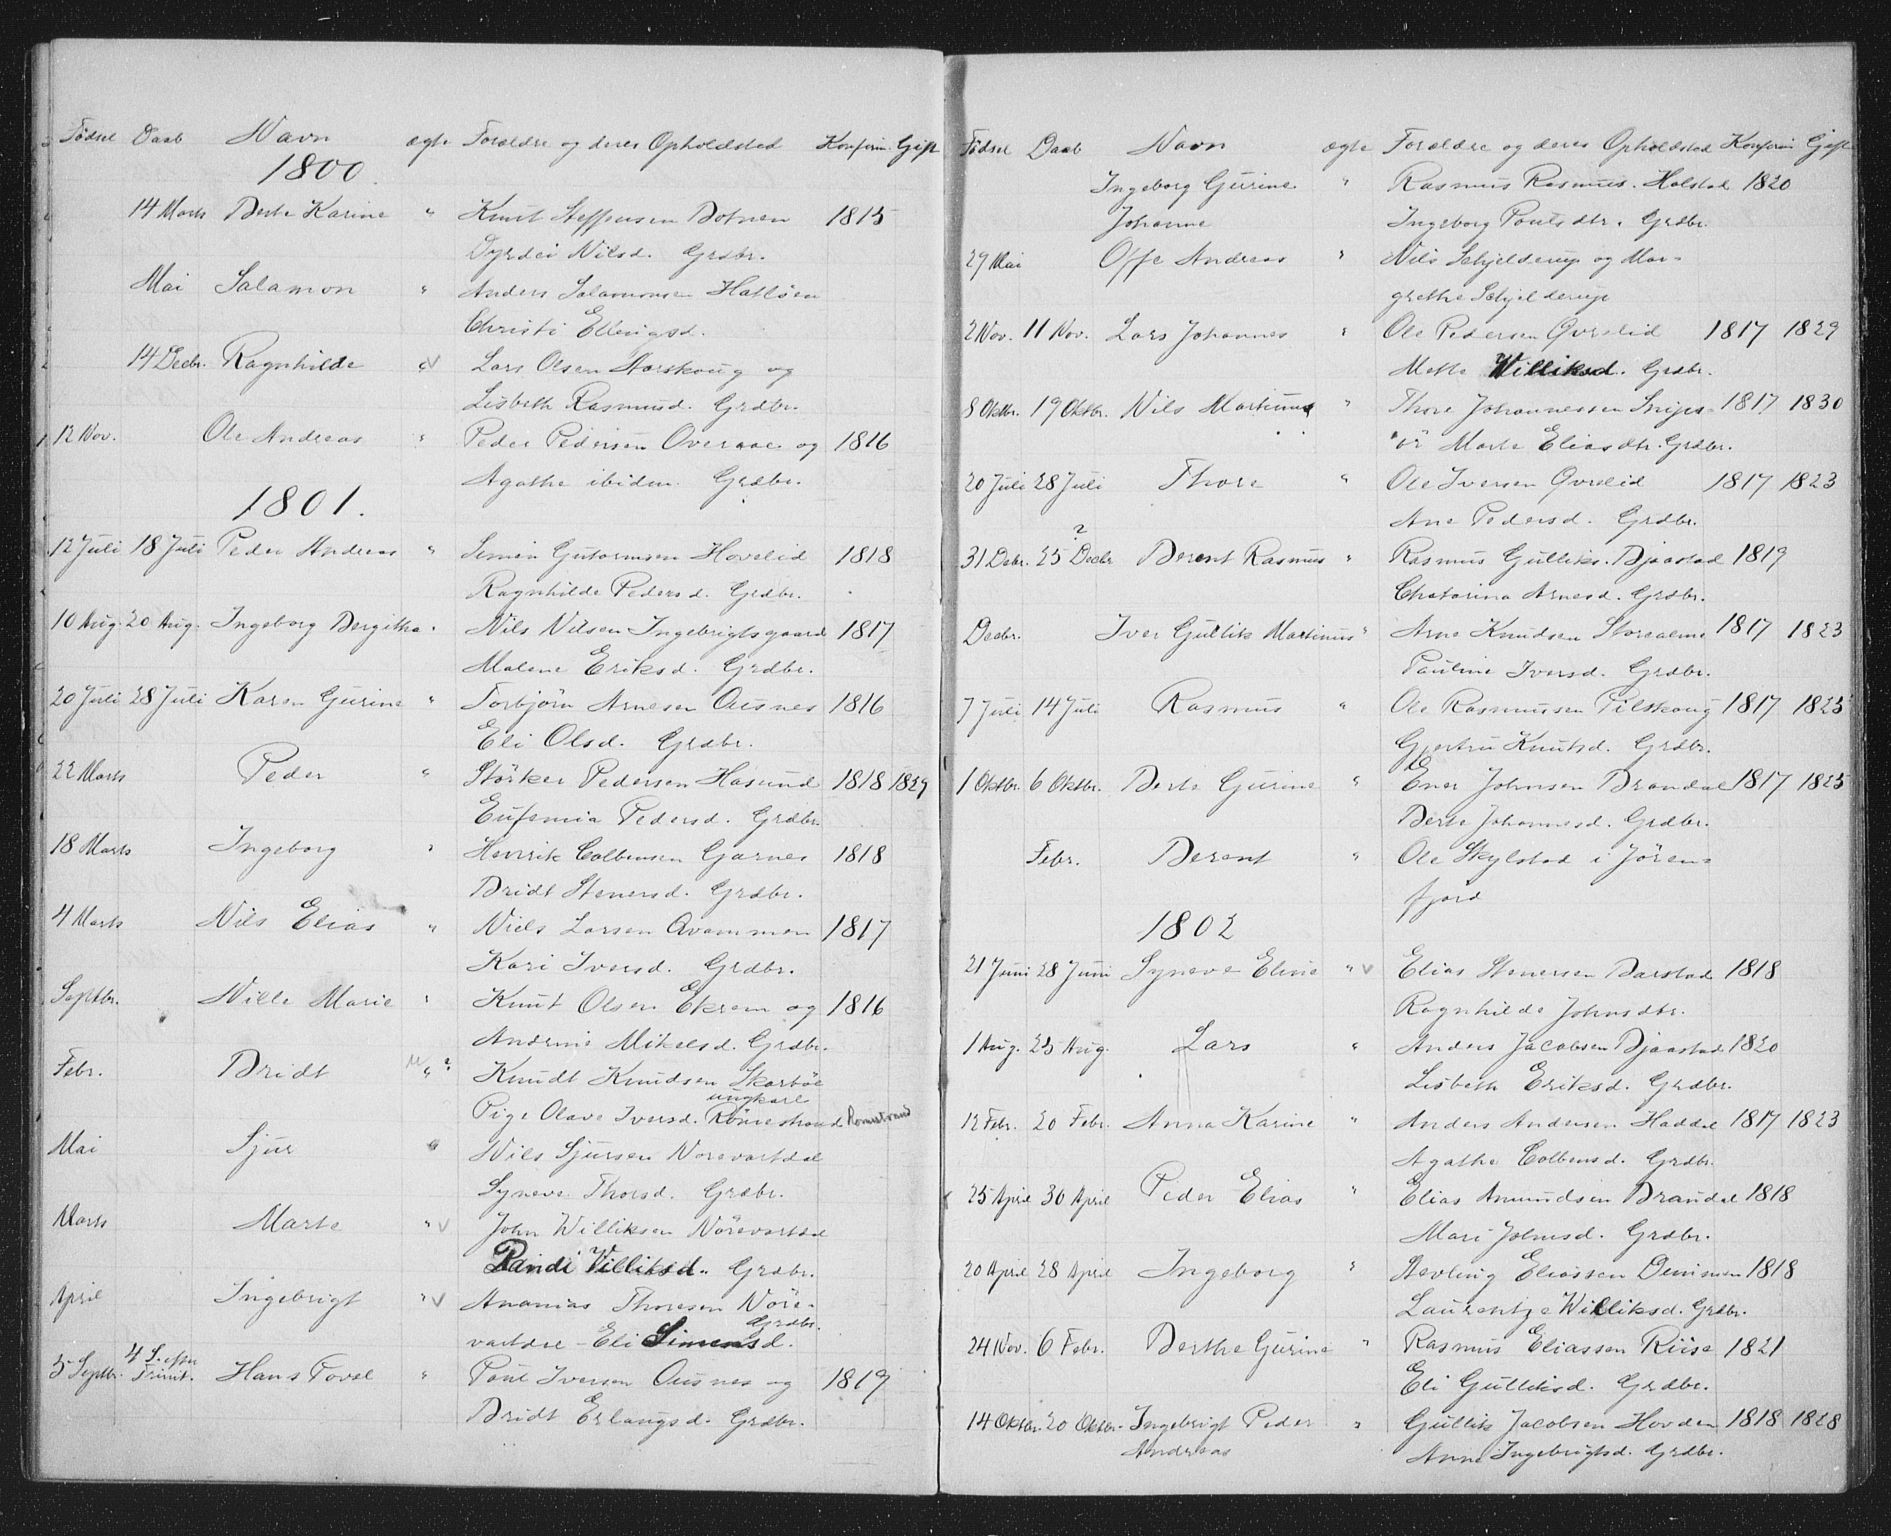 Fødsel Daab Navn ægte Forældre og deres Opholdsted Konfirm. Gift
1800.
14 Marts Berte Karine " Knut Steffensen Botnen 1815
Dyrdei Nilsd. Grdbr.
Mai Salamon " Anders Salamonsen Hatløen
Christi Ellingsd.
14 Decbr. Ragnhilde " v Lars Olsen Aarskoug og
Lisbeth Rasmusd. Grdbr.
12 Nov. Ole Andreas " Peder Pedersen Overaae og 1816
Agathe ibidem. Grdbr.
1801.
12 Juli 18 Juli Peder Andreas " Simen Gutormsen Hovelid 1818
Ragnhilde Pedersd. Grdbr.
10 Aug. 20 Aug. Ingeborg Bergitha " Nils Nilsen Ingebrigtsgaard 1817
Malene Eriksd. Grdbr.
20 Juli 28 Juli Karen Gurine " Torbjörn Arnesen Ousnes 1816
Eli Olsd. Grdbr.
22 Marts Peder " Störker Pedersen Hasund 1818 1829
Eufemia Pedersd. Grdbr.
18 Marts Ingeborg " Henrik Colbensen Garnes 1818
Bridt Stenersd. Grdbr.
4 Marts Nils Elias " Niels Larsen Qvammen 1817
Kari Iversd. Grdbr.
Septbr. Nille Marie " Knut Olsen Ekrem og 1816
Andrine Mikelsd. Grdbr.
Febr. Bridt " ? Knudt Knudsen Skarböe
ungkarl
Pige Olave Iversd. Rönnestrand Romestrand
Mai Sjur " Nils Sjursen Norevartdal
Syneve Thorsd. Grdbr.
Marts Marte " v John Williksen Nörevartdal
Randi Williksd. Grdbr.
April Ingebrigt " v Ananias Thoresen Nöre-
vartdal - Eli Simensd. Grdbr.
5 Septbr. 4 S. efter Trinit. Hans Tovel " Poul Iversen Ousnes og 1819
Bridt Erlangsd. Grdbr.
Fødsel Daab Navn ægte Forældre og deres Opholdsted Konfirm Gift
Ingeborg Gurine " Rasmus Rasmus. Holstad 1820
Johanne Ingeborg Poulsdtr. Grdbr.
29 Mai Offe Andreas " Nils Schjelderup og Mar-
grethe Schjelderup
2 Nov. 11 Nov. Lars Johannes " Ole Pedersen Qvrelid 1817 1829
Mette Williksd. Grdbr.
8 Oktbr. 19 Oktbr. Nils Martinus " Thore Johannessen Snips- 1817 1830
ör Marte Eliasdtr. Grdbr.
20 Juli 28 Juli Thore " Ole Iversen Qvrelid 1817 1823
Ane Pedersd. Grdbr.
31 Decbr. 25 Decbr ? Berent Rasmus " Rasmus Gulliks. Bjaastad 1819
Chatarina Arnesd. Grdbr.
Decbr. Iver Gullik Martinus " Arne Knudsen Storealme 1817 1823
Pauline Iversd. Grdbr.
7 Juli 14 Juli Rasmus " Ole Rasmussen Pilskoug 1817 1825
Gjertru Knutsd. Grdbr.
1 Oktbr. 6 Oktbr. Berte Gurine " Ener Johnsen Brandal 1817 1825
Berte Johannesd. Grdbr.
Febr. Berent " Ole Skylstad i Jören-
fjord
1802
21 Juni 28 Juni Syneve Eline " v Elias Stenersen Barstad 1818
Ragnhilde Johnsdtr.
1 Aug. 25 Aug. Lars " Anders Jacobsen Bjaastad 1820
Lisbeth Eriksd. Grdbr.
12 Febr. 20 Febr. Anna Karine " Anders Andersen Haddal 1817 1823
Agathe Colbensd. Grdbr.
25 April 30 April Peder Elias " Elias Amundsen Brandal 1818
Mari Johnsd. Grdbr.
20 April 28 April Ingeborg " Aevling Eliassen Dimmen 1818
Laurentze Williksd. Grdbr.
24 Nov. 6 Febr. Berthe Gurine " Rasmus Eliassen Riise 1821
Eli Gulliksd. Grdbr.
14 Oktbr. 20 Oktbr. Ingebrigt Peder " Gullik Jacobsen Hovden 1818 1828
Andreas Anne Ingebrigtsd. Grdbr.